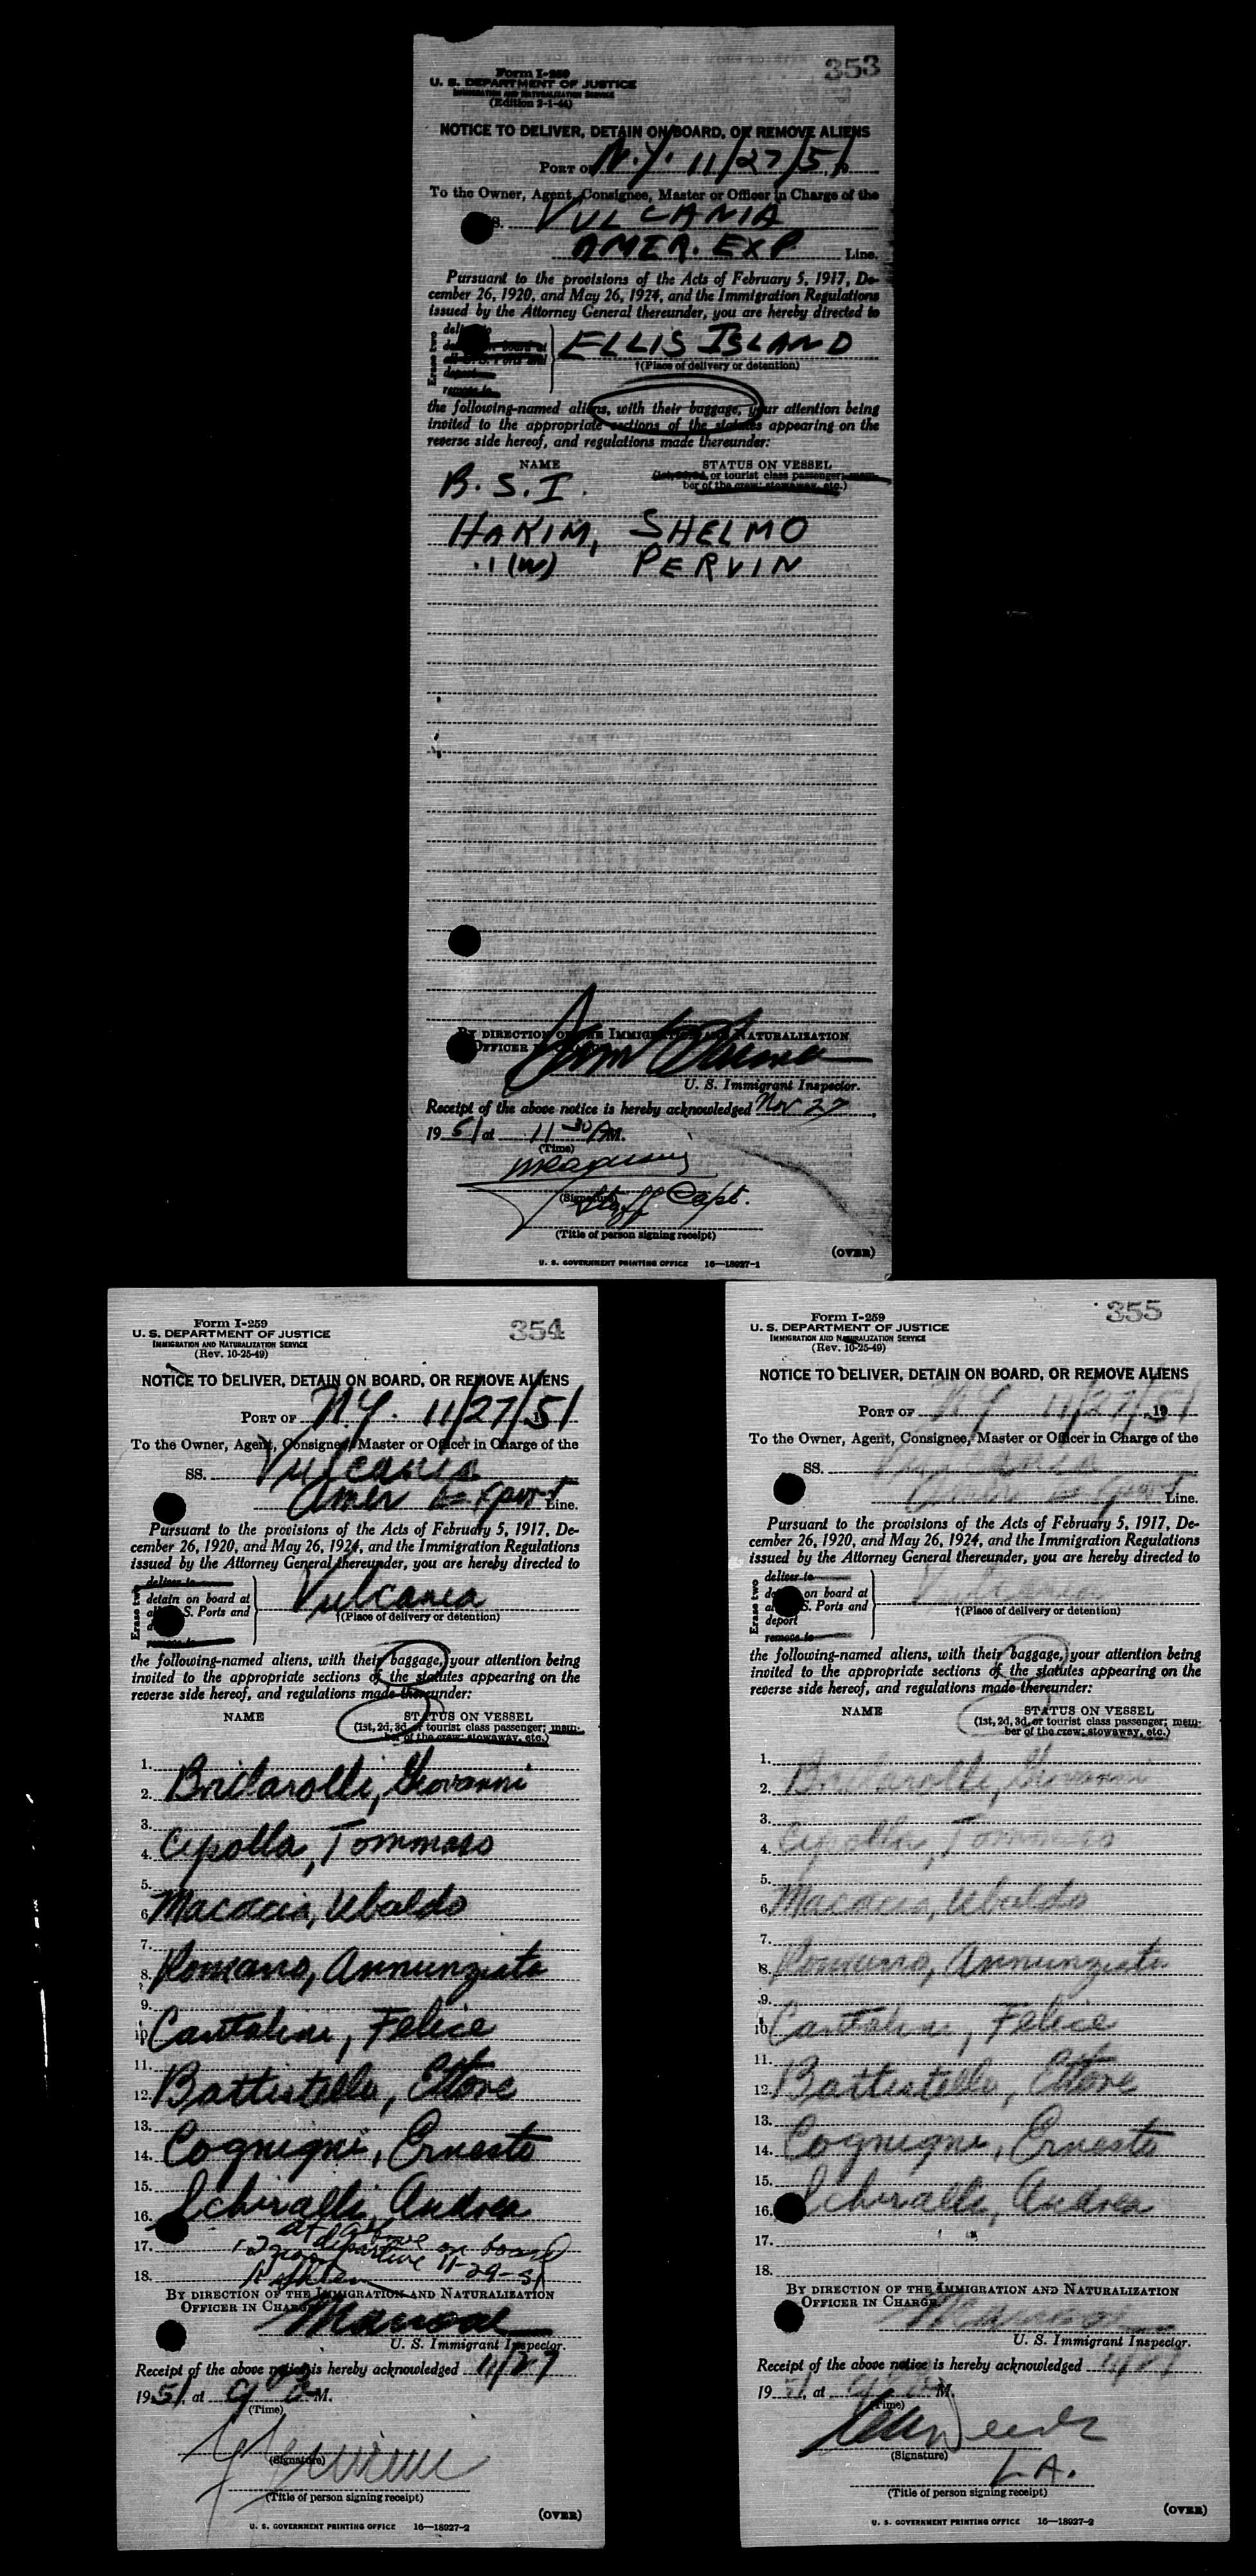 353
Form I-259
U. S. DEPARTMENT OF JUSTICE
IMMIGRATION AND NATURALIZATION SERVICE
(Edition 2-1-44)
NOTICE TO DELIVER, DETAIN ON BOARD, OR REMOVE ALIENS
PORT OF N.Y. 11/27/51
To the Owner, Agent, Consignee, Master or Officer in Charge of the
SS. VULCANIA
AMER. EXP. Line.
Pursuant to the provisions of the Acts of February 5, 1917, De-
cember 26, 1920, and May 26, 1924, and the Immigration Regulations
issued by the Attorney General thereunder, you are hereby directed to
Erase two
ELLIS ISLAND
†(Place of delivery or detention)
remove to
the following-named aliens, with their baggage, your attention being
invited to the appropriate sections of the statutes appearing on the
reverse side hereof, and regulations made thereunder:
NAME STATUS ON VESSEL
or tourist class passenger; mem-
ber of the crew; stowaway, etc.)
B.S.I.
HAKIM, SHELMO
" (W) PERVIN
BY DIRECTION OF THE IMMIGRATION AND NATURALIZATION
OFFICER IN
U. S. Immigrant Inspector.
Receipt of the above notice is hereby acknowledged Nov 27
1951 at 11 30 AM.
(Time)
(Signature)
Staff Capt.
(Title of person signing receipt)
(OVER)
U. S. GOVERNMENT PRINTING OFFICE 16—18927-1
354
Form I-259
U. S. DEPARTMENT OF JUSTICE
IMMIGRATION AND NATURALIZATION SERVICE
(Rev. 10-25-49)
NOTICE TO DELIVER, DETAIN ON BOARD, OR REMOVE ALIENS
PORT OF N.Y. 11/27/51
To the Owner, Agent, Consignee, Master or Officer in Charge of the
SS. Vulcania
Amer Export Line.
Pursuant to the provisions of the Acts of February 5, 1917, De-
cember 26, 1920, and May 26, 1924, and the Immigration Regulations
issued by the Attorney General thereunder, you are hereby directed to
Erase two
deliver to
detain on board at
S. Ports and
remove to
Vulcania
†(Place of delivery or detention)
the following-named aliens, with their baggage, your attention being
invited to the appropriate sections of the statutes appearing on the
reverse side hereof, and regulations made thereunder:
NAME STATUS ON VESSEL
(1st, 2d, 3d, or tourist class passenger; mem-
ber of the crew; stowaway, etc.)
1.
2. Bridarolli, Giovanni
3.
4. Cipolla, Tommaso
5.
6. Macaccia, Ubaldo
7.
8. Romano, Annunziata
9.
10. Cantalini, Felice
11.
12. Battistella, Ettore
13.
14. Cognigni, Ernesto
15.
16. Schiralli, Andrea
17. on board
departure 11-29-51
18.
BY DIRECTION OF THE IMMIGRATION AND NATURALIZATION
OFFICER IN CHARGE
U. S. Immigrant Inspector.
Receipt of the above notice is hereby acknowledged 11/27
1951, at 9 a M.
(Time)
(Signature)
(Title of person signing receipt)
(OVER)
U. S. GOVERNMENT PRINTING OFFICE 16—18927-2
355
Form I-259
U. S. DEPARTMENT OF JUSTICE
IMMIGRATION AND NATURALIZATION SERVICE
(Rev. 10-25-49)
NOTICE TO DELIVER, DETAIN ON BOARD, OR REMOVE ALIENS
PORT OF N.Y. 11/27/51
To the Owner, Agent, Consignee, Master or Officer in Charge of the
SS. Vulcania
Amer Export Line.
Pursuant to the provisions of the Acts of February 5, 1917, De-
cember 26, 1920, and May 26, 1924, and the Immigration Regulations
issued by the Attorney General thereunder, you are hereby directed to
Erase two
deliver to
on board at
S. Ports and
deport
remove to
Vulcania
†(Place of delivery or detention)
the following-named aliens, with their baggage, your attention being
invited to the appropriate sections of the statutes appearing on the
reverse side hereof, and regulations made thereunder:
NAME STATUS ON VESSEL
(1st, 2d, 3d, or tourist class passenger; mem-
ber of the crew; stowaway, etc.)
1.
2. Bridarolli, Giovanni
3.
4. Cipolla, Tommaso
5.
6. Macaccia, Ubaldo
7.
8. Romano, Annunziata
9.
10. Cantalini, Felice
11.
12. Battistella, Ettore
13.
14. Cognigni, Ernesto
15.
16. Schiralli, Andrea
17.
18.
BY DIRECTION OF THE IMMIGRATION AND NATURALIZATION
OFFICER IN CHARGE
U. S. Immigrant Inspector.
Receipt of the above notice is hereby acknowledged 11/27
1951, at 9 a M.
(Time)
(Signature)
L.A.
(Title of person signing receipt)
(OVER)
U. S. GOVERNMENT PRINTING OFFICE 16—18927-2